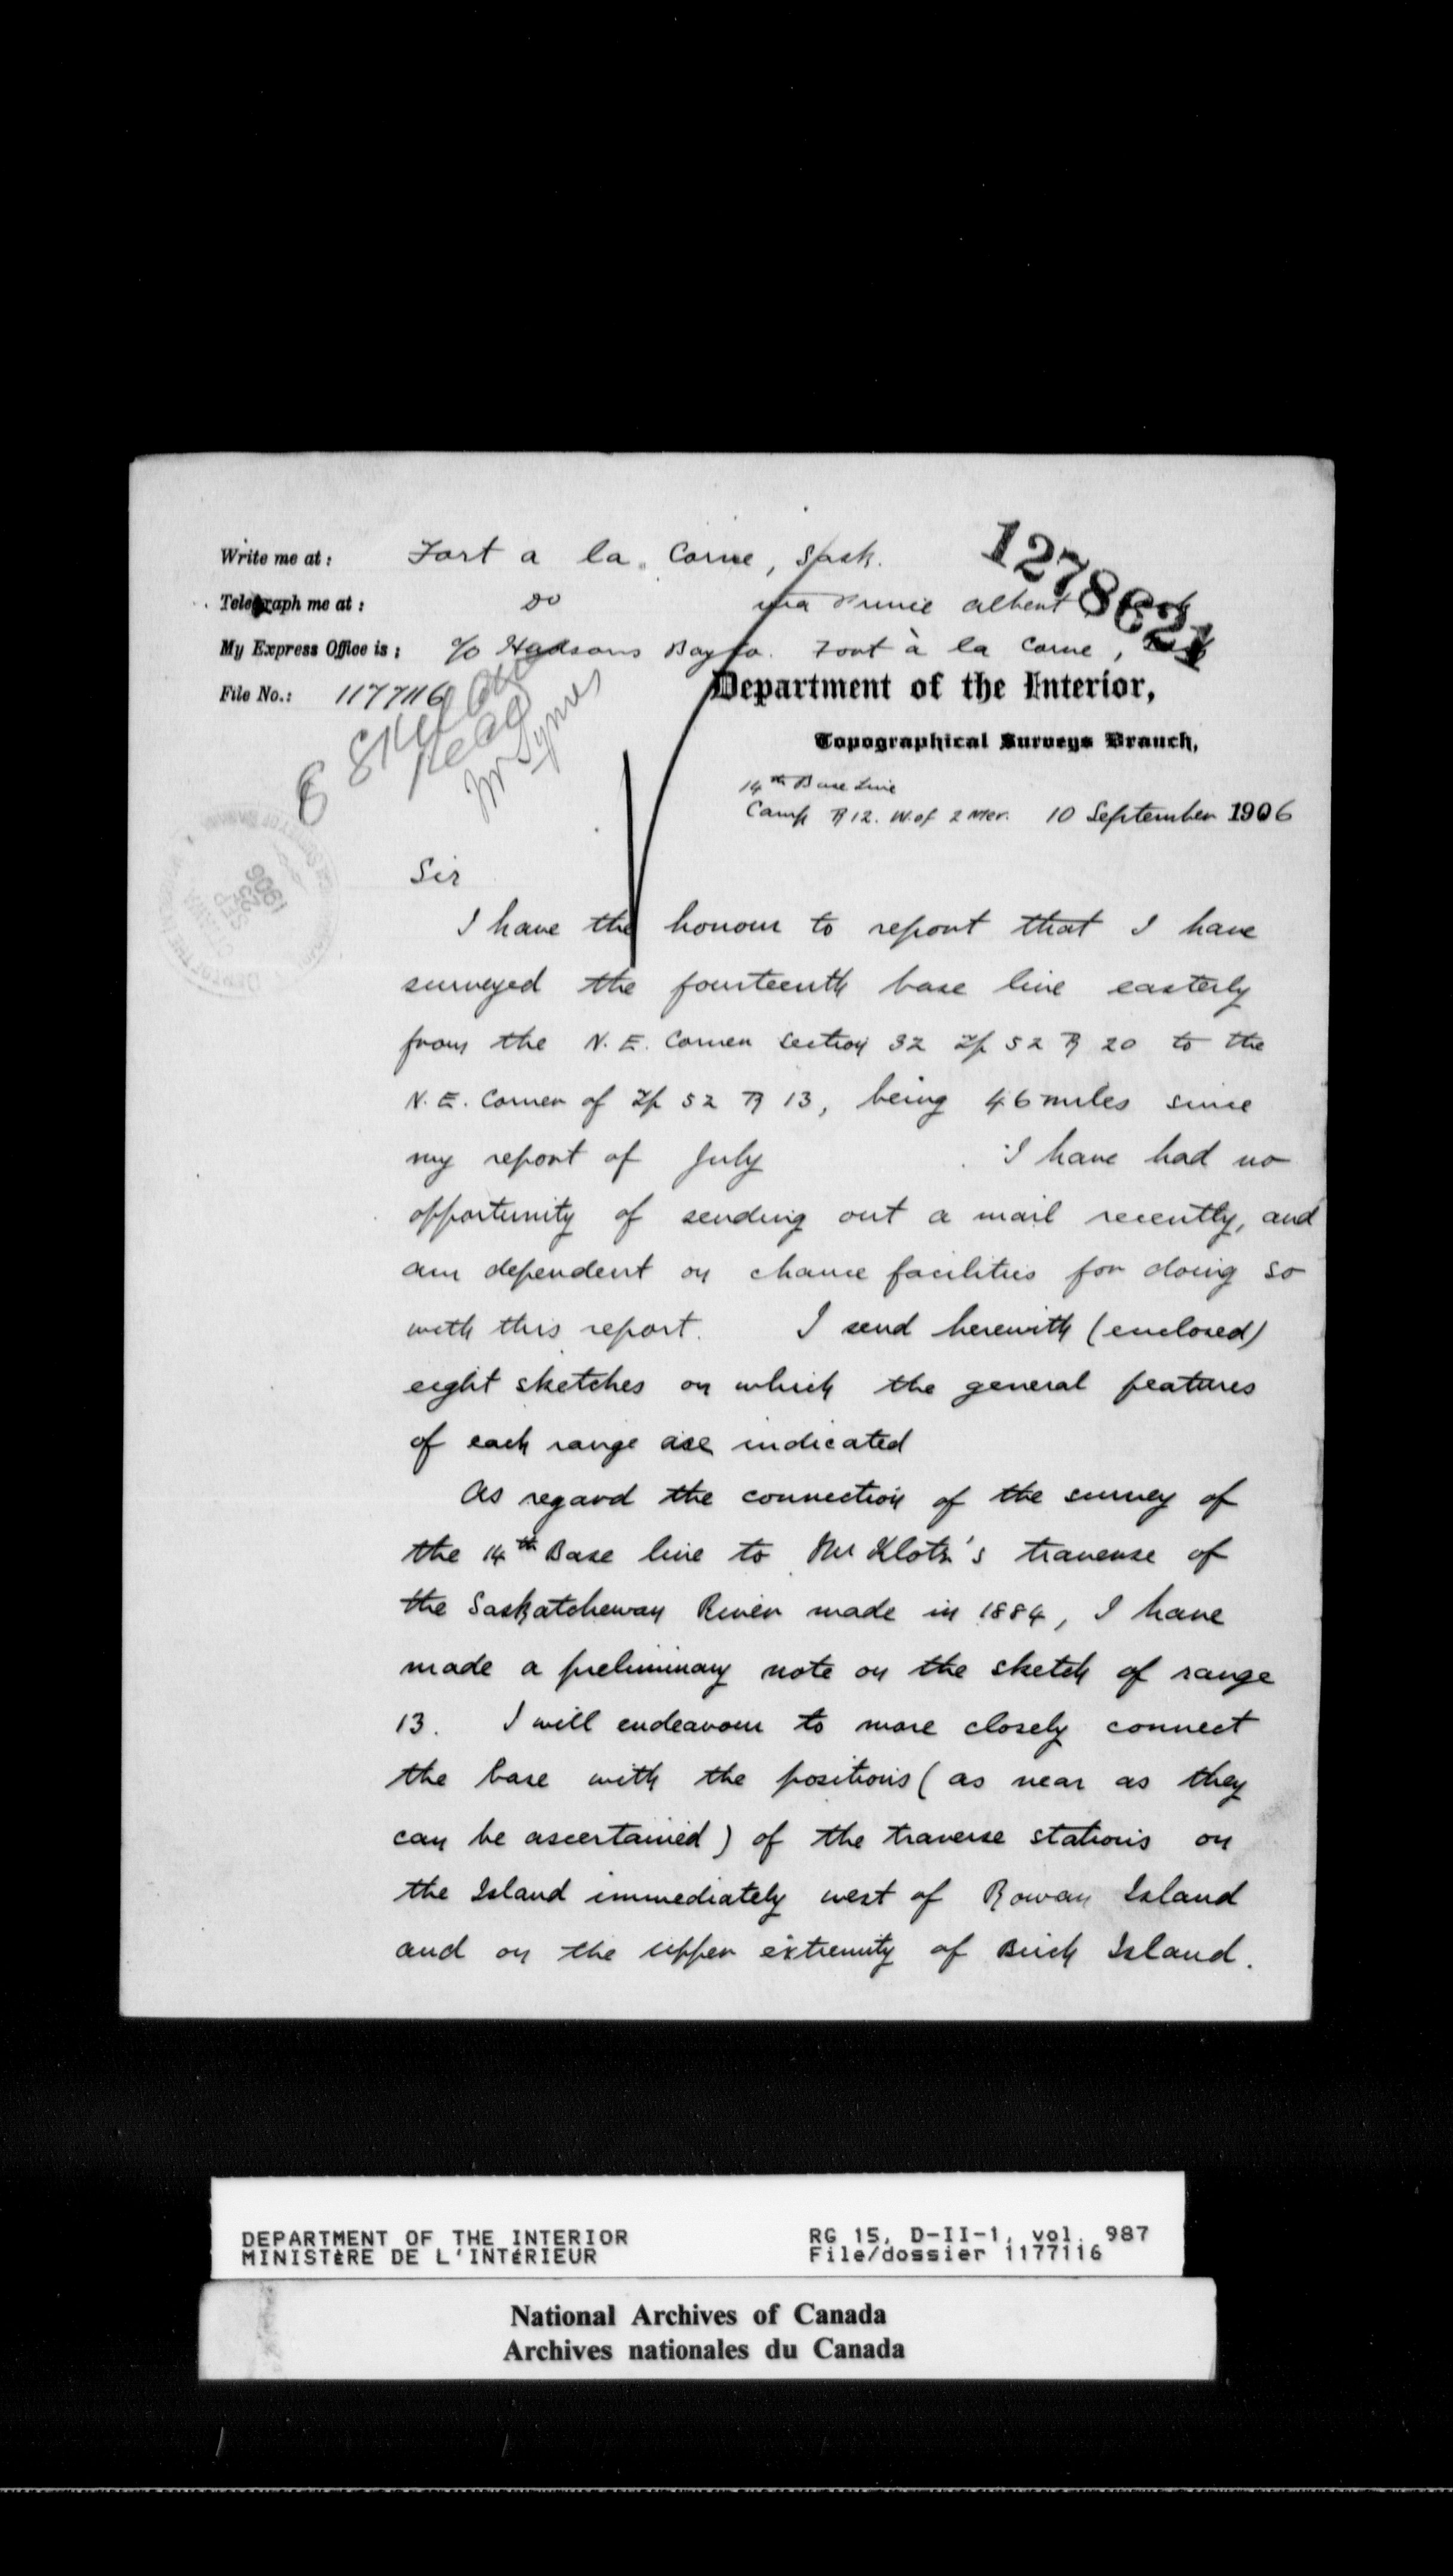 Write me at: Fort a la Corne, Sask.
Telegraph me at: do via Prince Albert Sask
My Express Office is: c/o Hudsons Bay Co. Fort à la Corne,
127862
File No.: 1177116
Department of the Interior,
Topographical Surveys Branch,
8 Sketches
Mr Symes
14th Base Line
Camp R 12. W. of 2 Mer. 10 September 1906
Sir
I have the honour to report that I have
surveyed the fourteenth base line easterly
from the N. E. Corner Section 32 Tp 52 R 20 to the
N. E. Corner of Tp 52 R 13, being 46 miles since
my report of July . I have had no
opportunity of sending out a mail recently, and
am dependent on chance facilities for doing so
with this report. I send herewith (enclosed)
eight sketches on which the general features
of each range are indicated
As regard the connection of the survey of
the 14th Base line to Mr Klotz's traverse of
the Saskatchewan River made in 1884, I have
made a preliminary note on the sketch of range
13. I will endeavour to more closely connect
the base with the positions (as near as they
can be ascertained) of the traverse stations on
the Island immediately west of Rowan Island
and on the upper extremity of Birch Island.
DEPARTMENT OF THE INTERIOR RG 15, D-II-1, vol. 987
MINISTÈRE DE L'INTÉRIEUR File/dossier 1177116
National Archives of Canada
Archives nationales du Canada